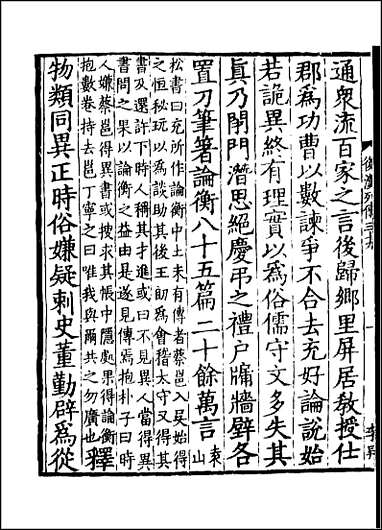 後漢列傳三十九
通衆流百家之言後歸鄉里屏居教授仕
郡爲功曹以數諫爭不合去充好論說始
若詭異終有理實以爲俗儒守文多失其
眞乃閉門潛思絕慶弔之禮戶牖牆壁各
置刀筆著論衡八十五篇二十餘萬言袁山
松書曰充所作論衡中土未有傳者蔡邕入吳始得
之恒秘玩以爲談助其後王朗爲會稽太守又得其
書及還許下時人稱其才進或曰不見異人當得異
書問之果以論衡之益由是遂見傳焉抱朴子曰時
人嫌蔡邕得異書或搜求其帳中隱處果得論衡
抱數卷持去邕丁寧之曰唯我與爾共之勿廣也釋
物類同異正時俗嫌疑刺史董勤辟爲從